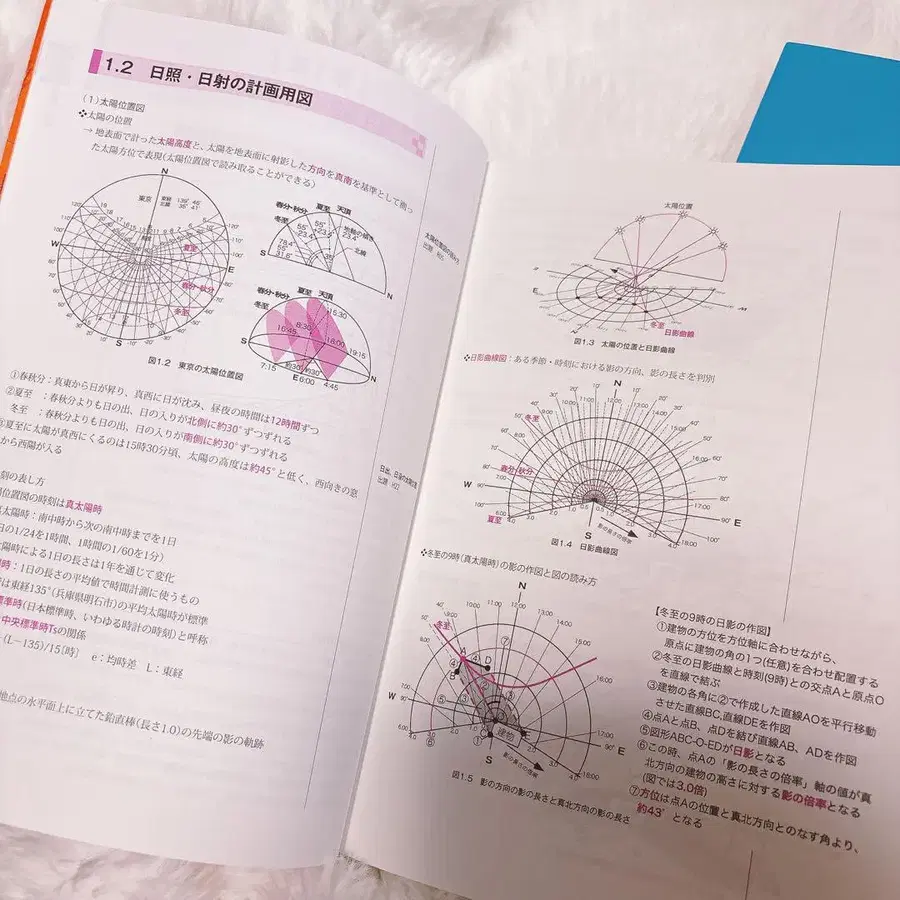 1.2 日照・日射の計画用図
(1)太陽位置図
❖太陽の位置
→ 地表面で計った太陽高度と、太陽を地表面に射影した方向を真南を基準として測っ
た太陽方位で表現(太陽位置図で読み取ることができる)
N
東京
東経 139°46′
北緯 35°41′
W
E
S
夏至
春分・秋分
冬至
春分・秋分 夏至 天頂
冬至
地軸の傾き
北緯
S
N
春分・秋分 夏至 天頂
冬至
15:30
8:30
16:45
18:00
19:15
約30° 約30°
7:15
E 6:00
4:45
S
N
図1.2 東京の太陽位置図
太陽位置図の読み方
①春秋分:真東から日が昇り、真西に日が沈み、昼夜の時間は12時間ずつ
②夏至 :春秋分よりも日の出、日の入りが北側に約30°ずつずれる
冬至 :春秋分よりも日の出、日の入りが南側に約30°ずつずれる
夏至に太陽が真西にくるのは15時30分頃、太陽の高度は約45°と低く、西向きの窓
から西陽が入る
刻の表し方
位置図の時刻は真太陽時
太陽時:南中時から次の南中時までを1日
日の1/24を1時間、1時間の1/60を1分)
陽時による1日の長さは1年を通じて変化
時:1日の長さの平均値で時間計測に使うもの
時は東経135°(兵庫県明石市)の平均太陽時が標準
標準時(日本標準時、いわゆる時計の時刻)と呼称
中央標準時Tsの関係
(L−135)/15[時] e:均時差 L:東経
地点の水平面上に立てた鉛直棒(長さ1.0)の先端の影の軌跡
太陽位置
冬至
日影曲線
図1.3 太陽の位置と日影曲線
❖日影曲線図:ある季節・時刻における影の方向、影の長さを判別
N
冬至
春分・秋分
夏至
W
E
S
影の長さの倍率
図1.4 日影曲線図
❖冬至の9時(真太陽時)の影の作図と図の読み方
N
冬至
A
B
D
建物
W
E
S
影の長さの倍率
図1.5 影の方向の影の長さと真北方向の影の長さ
【冬至の9時の日影の作図】
①建物の方位を方位軸に合わせながら、
原点に建物の角の1つ(任意)を合わせ配置する
②冬至の日影曲線と時刻(9時)との交点Aと原点O
を直線で結ぶ
③建物の各角に②で作成した直線AOを平行移動
させた直線BC,直線DEを作図
④点Aと点B、点Dを結び直線AB、ADを作図
⑤図形ABC-O-EDが日影となる
⑥この時、点Aの「影の長さの倍率」軸の値が真
北方向の建物の高さに対する影の倍率となる
(図では3.0倍)
⑦方位は点Aの位置と真北方向とのなす角より、
約43°となる